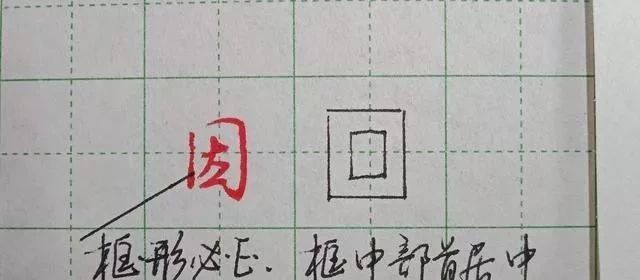 因
框形必正.框中部首居中